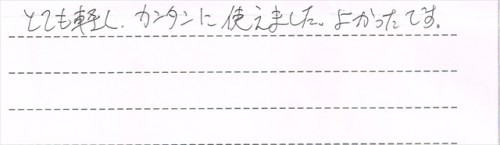 とても軽く、カンタンに使えました。よかったです。